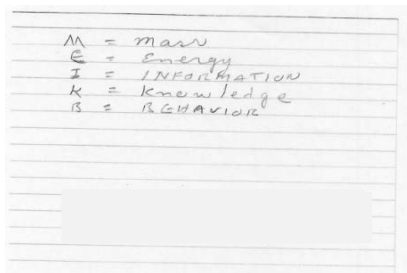 M = Mass
E = Energy
I = INFORMATION
K = Knowledge
B = BEHAVIOR